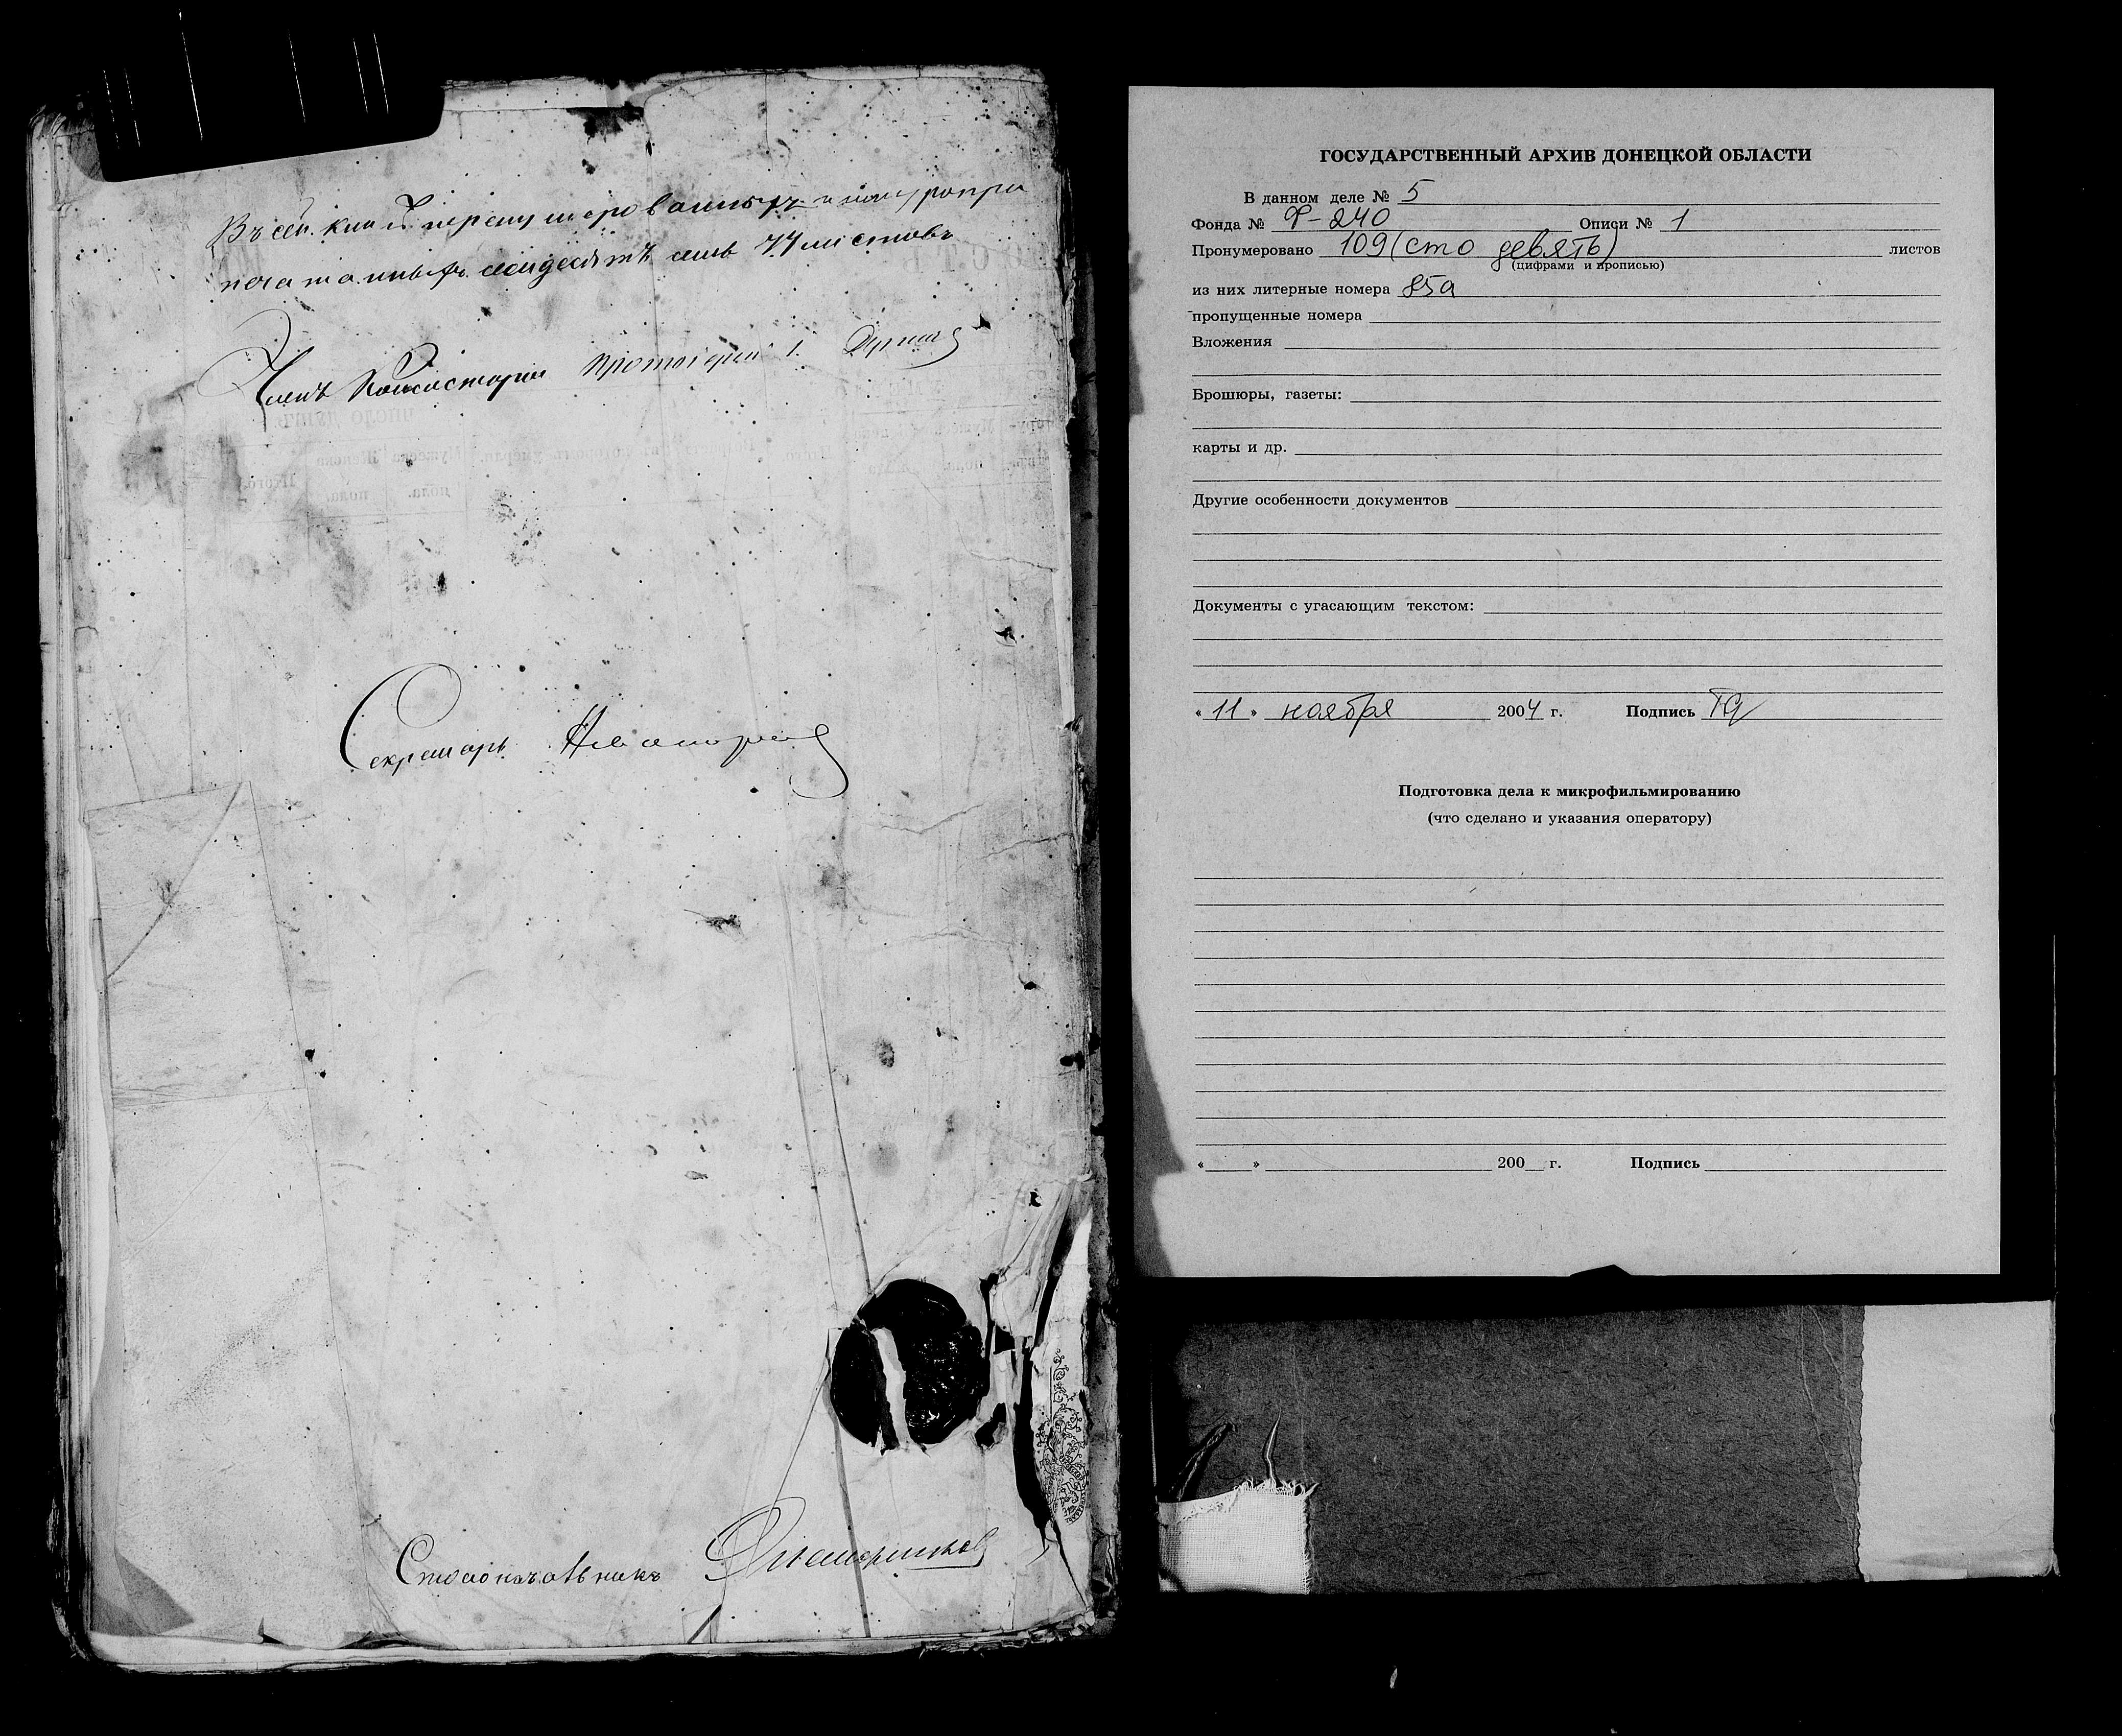 Въ сей книгѣ перенумерованныхъ и шнуропри
печатанныхъ семдесятъ семь 77 листовъ
Членъ Консисторіи Протоіерей І.
Секретарь
Столоначальникъ
ГОСУДАРСТВЕННЫЙ АРХИВ ДОНЕЦКОЙ ОБЛАСТИ
В данном деле № 5
Фонда № Ф-240 Описи № 1
Пронумеровано 109 (сто девять) листов
(цифрами и прописью)
из них литерные номера 85а
пропущенные номера
Вложения
Брошюры, газеты:
карты и др.
Другие особенности документов
Документы с угасающим текстом:
« 11 » ноября 2004 г. Подпись
Подготовка дела к микрофильмированию
(что сделано и указания оператору)
« » 200 г. Подпись